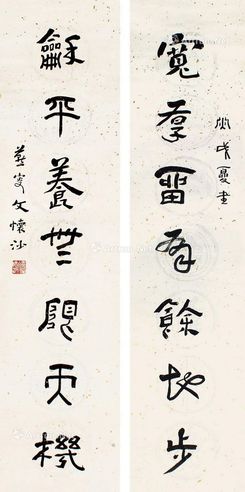 寬厚留有餘地步
戌夏書
龢平養無限天機
燕叟文懷沙